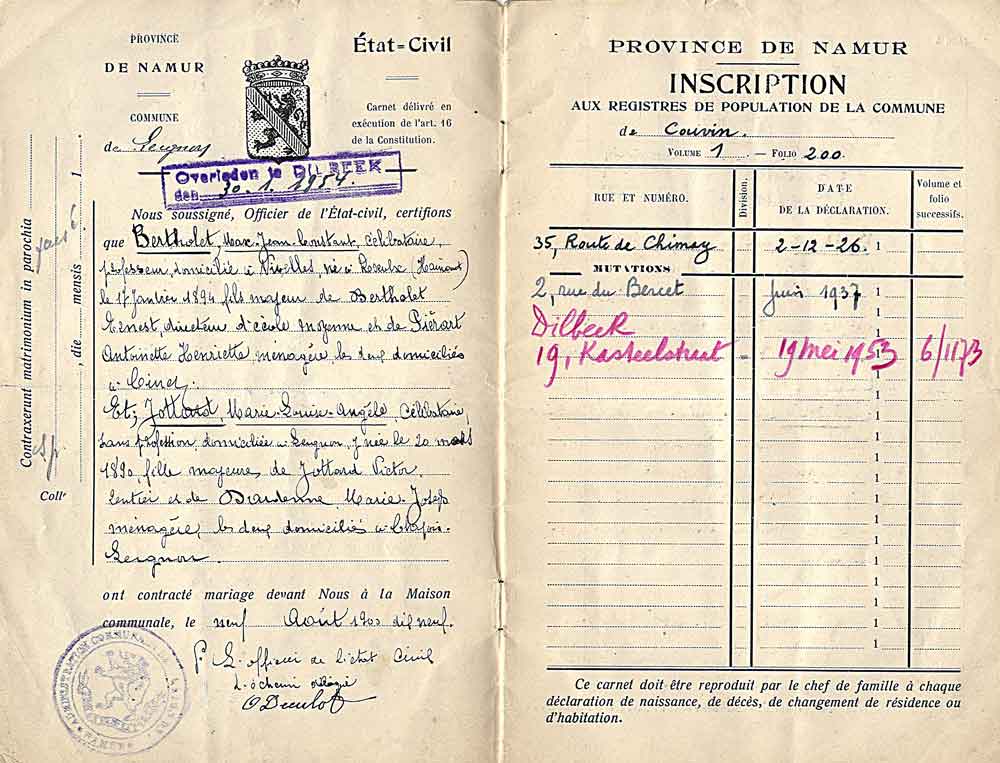 PROVINCE
DE NAMUR
COMMUNE
de Leignon
État=Civil
Carnet délivré en
exécution de l'art. 16
de la Constitution.
Overleden te DILBEEK
den 30.1.1954.
Nous soussigné, Officier de l'État-civil, certifions
que Bertholet, Max-Jean-Constant, célibataire,
professeur, domicilié à Nivelles, né à Roeulx (Hainaut)
le 17 Janvier 1894 fils majeur de Bertholet
Ernest, directeur d'école moyenne et de Piérart
Antoinette Henriette ménagère, les deux domiciliés
à Ciney.
Et, Jottard, Marie-Louise-Angèle, célibataire,
sans profession, domiciliée à Leignon, y née le 20 mars
1890, fille majeure de Jottard Victor,
rentier et de Dardenne Marie-Josep
ménagère, les deux domiciliés à
Leignon.
ont contracté mariage devant Nous à la Maison
communale, le neuf Août 1900 dix neuf.
L'officier de l'état Civil
L'échevin délégué
Contraxerunt matrimonium in parochia
, die mensis 1
Coll
ADMINISTRATION COMMUNALE DE
NAMUR
PROVINCE DE NAMUR
INSCRIPTION
AUX REGISTRES DE POPULATION DE LA COMMUNE
de Couvin.
VOLUME 1 — FOLIO 200.
RUE ET NUMÉRO.
Division.
DATE
DE LA DÉCLARATION.
Volume et
folio
successifs.
35, Route de Chimay 2-12-26. 1
MUTATIONS
2, rue du Bercet Juin 1937 1
Dilbeek 1
19, Kasteelstraat - 19 mei 1953 1 6/1173
1
1
1
1
1
1
1
1
1
1
1
1
1
1
Ce carnet doit être reproduit par le chef de famille à chaque
déclaration de naissance, de décès, de changement de résidence ou
d'habitation.